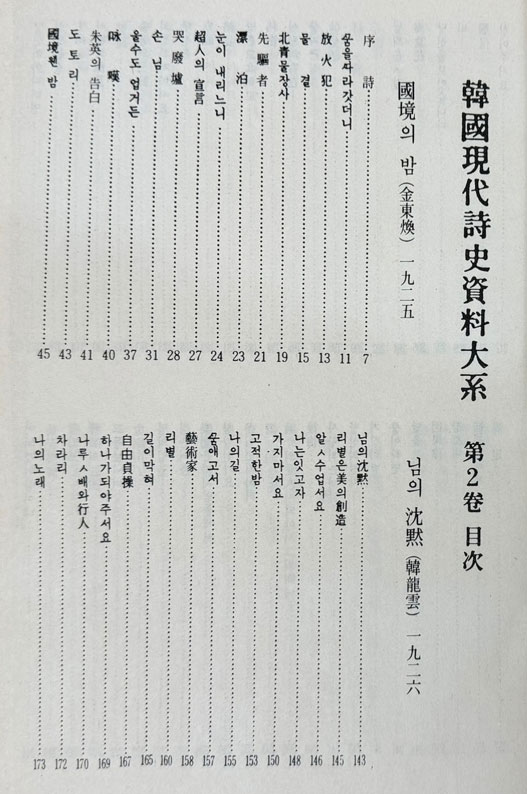 韓國現代詩史資料大系 第2卷 目次
國境의 밤 (金東煥) 一九二五
序詩 7
꿈을따라갓더니 11
放火犯 13
물결 15
北靑물장사 19
先驅者 21
漂泊 23
눈이 내리느니 24
超人의 宣言 27
哭廢墟 28
손님 31
울수도 업거든 37
咏嘆 40
朱英의 告白 41
도토리 43
國境의 밤 45
님의 沈默 (韓龍雲) 一九二六
님의沈默 143
리별은美의創造 145
알ㅅ수업서요 146
나는잇고자 148
가지마서요 150
고적한밤 153
나의길 155
꿈깨고서 157
藝術家 158
리별 160
길이막혀 165
自由貞操 167
하나가되야주서요 169
나루ㅅ배와行人 170
차라리 172
나의노래 173